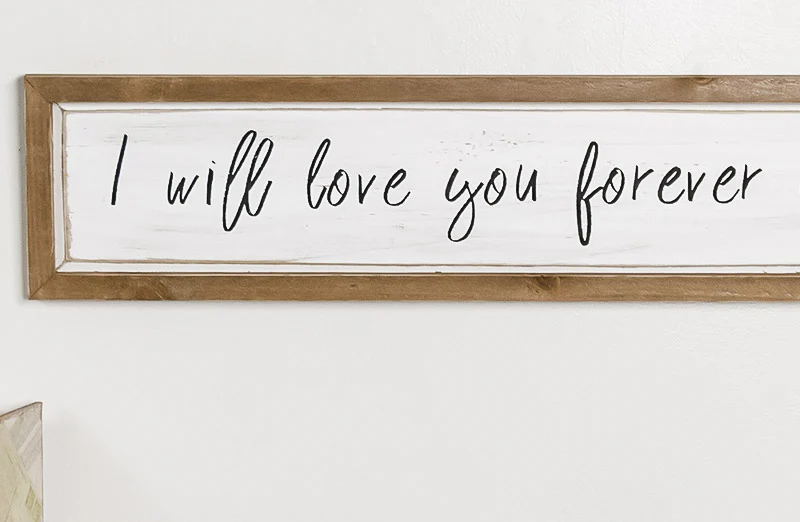 I will love you forever